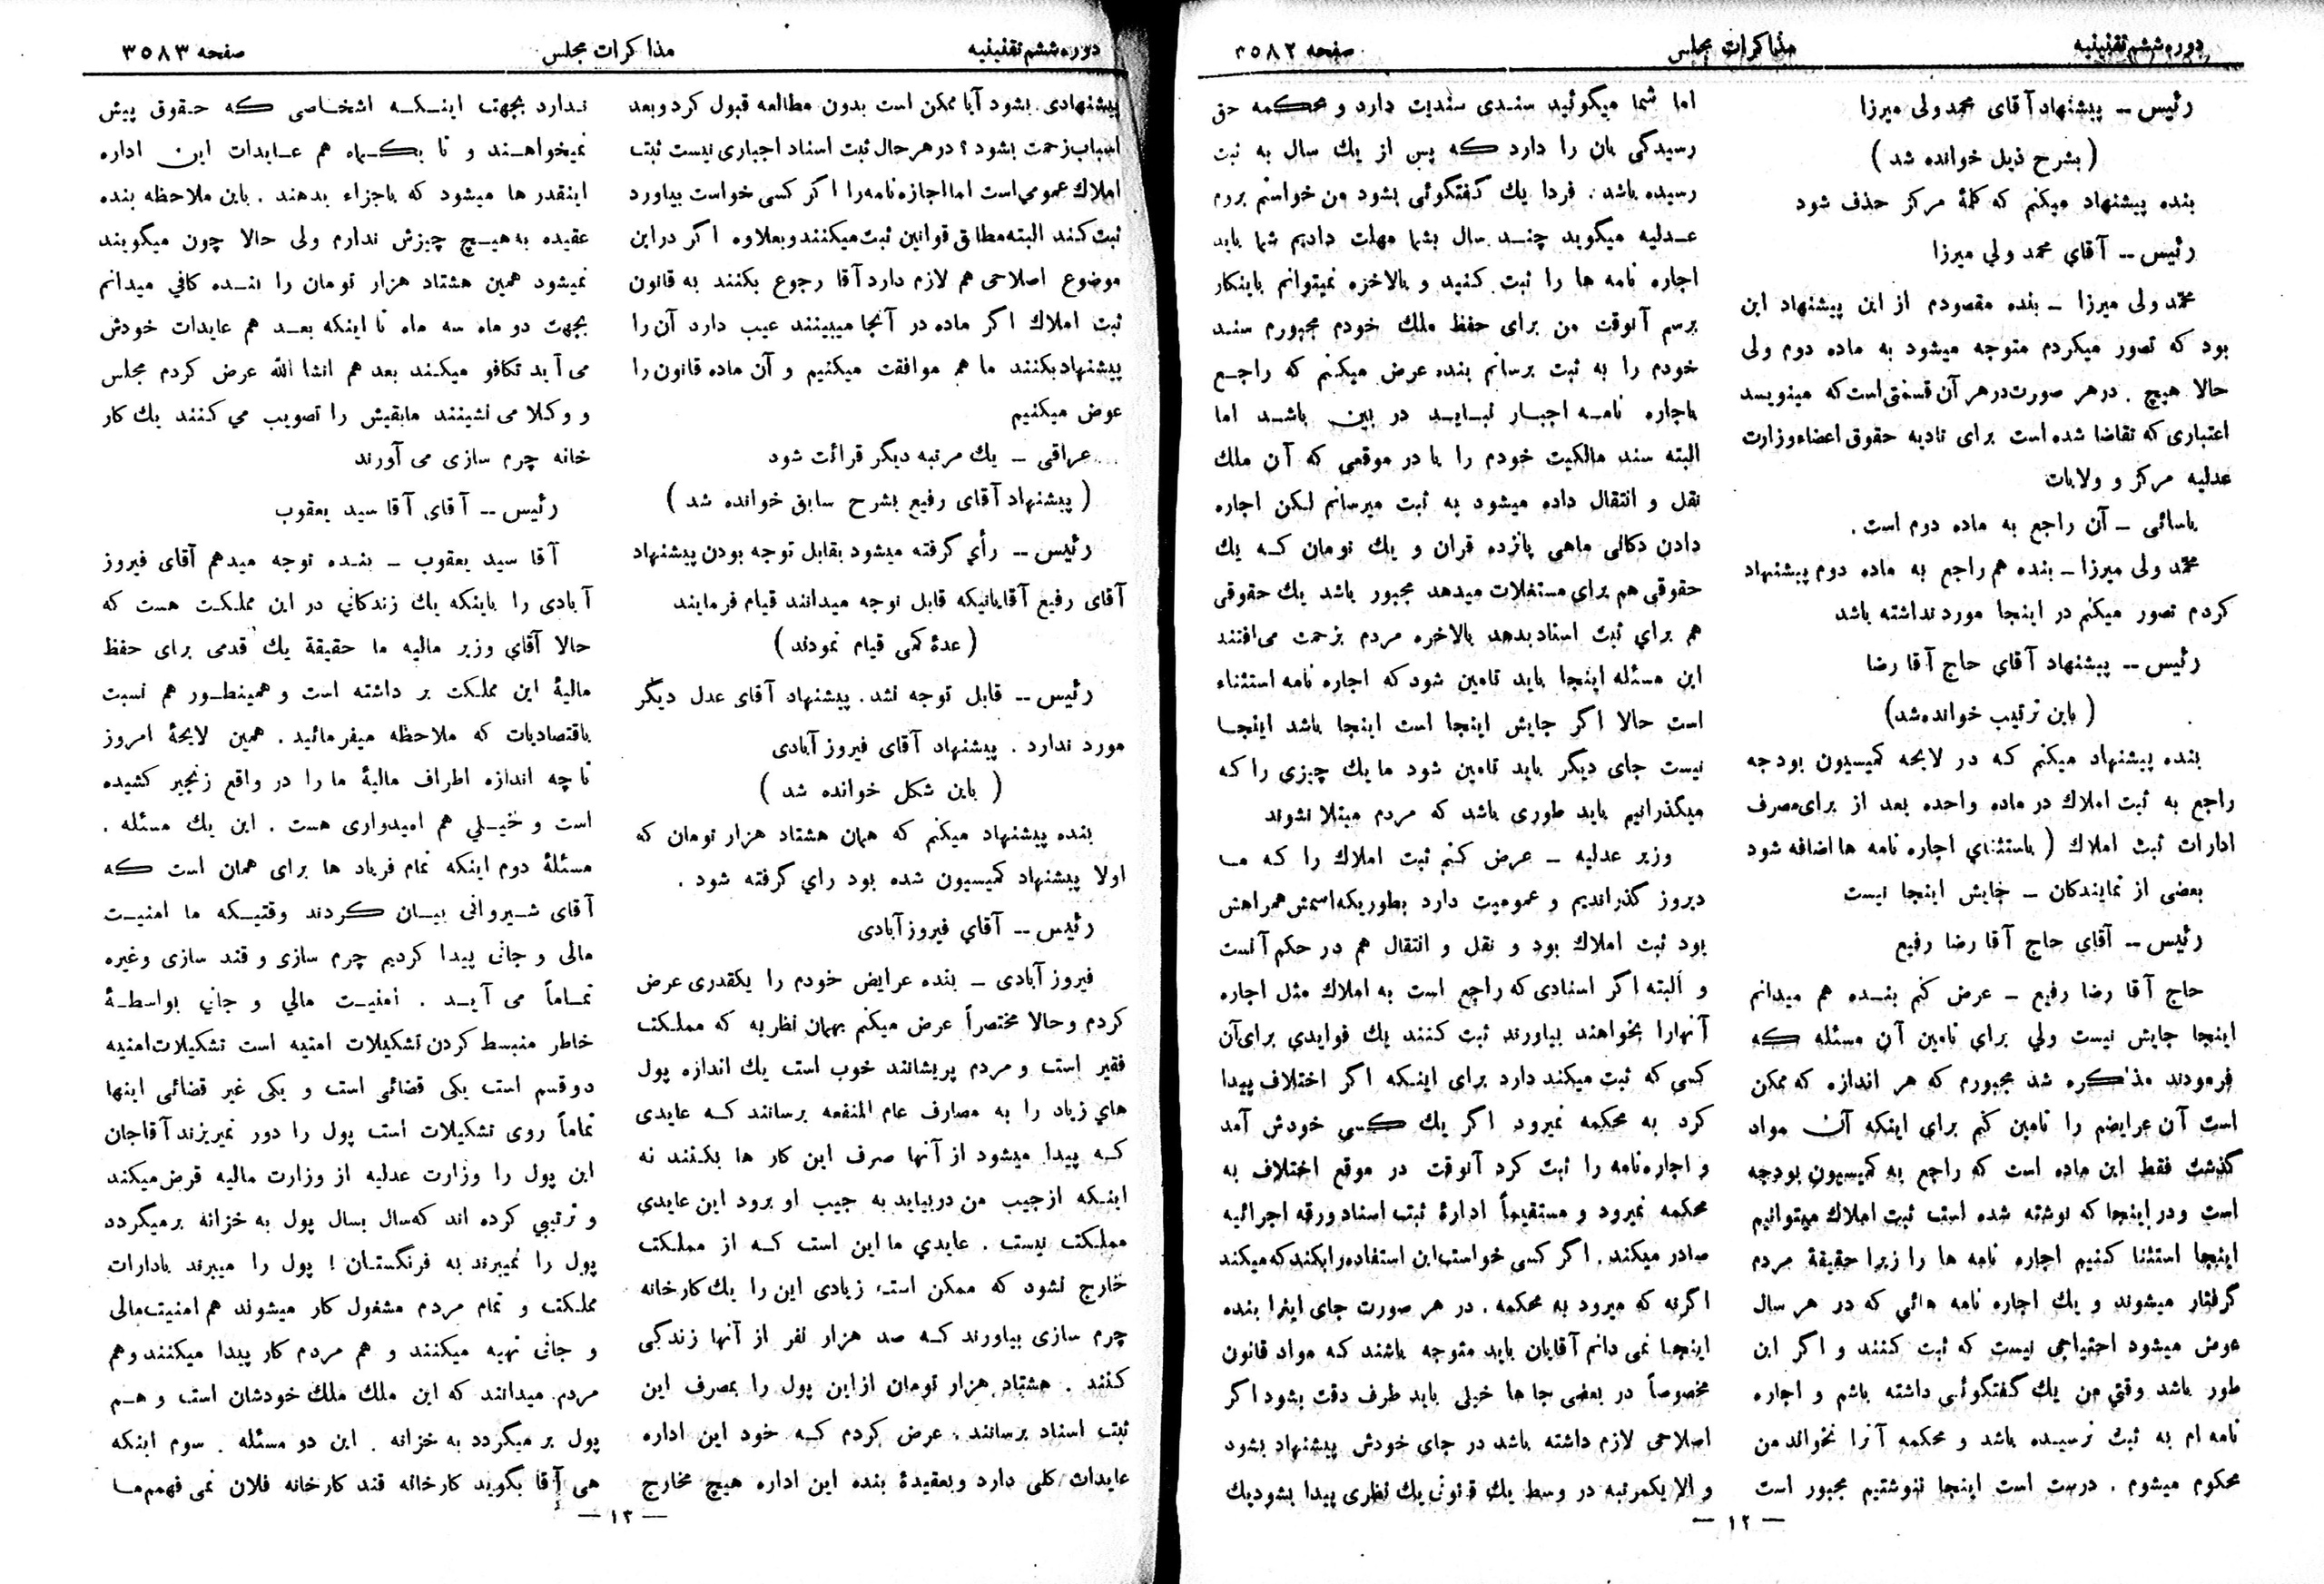 دوره ششم تقنینیه
مذاکرات مجلس
صفحه ۳۵۸۲
رئیس – پیشنهاد آقای محمد ولی میرزا
( بشرح ذیل خوانده شد )
بنده پیشنهاد میکنم که کلمهٔ مرکز حذف شود
رئیس – آقاي محمد ولي میرزا
محمد ولی میرزا – بنده مقصودم از این پیشنهاد این
بود که تصور میکردم متوجه میشود به ماده دوم ولی
حالا هیچ . در هر صورت در هر آن قسمتی است که مینویسد
اعتباری که تقاضا شده است برای تادیه حقوق اعضاء وزارت
عدلیه مرکز و ولایات
یاسائی – آن راجع به ماده دوم است .
محمد ولی میرزا – بنده هم راجع به ماده دوم پیشنهاد
کردم تصور میکنم در اینجا مورد نداشته باشد
رئیس – پیشنهاد آقاي حاج آقا رضا
( باین ترتیب خوانده شد)
بنده پیشنهاد میکنم که در لایحه کمیسیون بودجه
راجع به ثبت املاك در ماده واحده بعد از برای مصرف
ادارات ثبت املاك ( باستثناي اجاره نامه ها اضافه شود
بعضی از نمایندکان – جایش اینجا نیست
رئیس – آقاي حاج آقا رضا رفیع
حاج آقا رضا رفیع – عرض کنم بنده هم میدانم
اینجا جایش نیست ولي براي تامین آن مسئله که
فرمودند مذاکره شد مجبورم که هر اندازه که ممکن
است آن عرایضم را تامین کنم براي اینکه آن مواد
گذشت فقط این ماده است که راجع به کمیسیون بودجه
است و در اینجا که نوشته شده است ثبت املاك میتوانیم
اینجا استثنا کنیم اجاره نامه ها را زیرا حقیقة مردم
گرفتار میشوند و یك اجاره نامه هائي که در هر سال
عوض میشود احتیاجی نیست که ثبت کنند و اگر این
طور باشد وقتي من یك گفتگوئی داشته باشم و اجاره
نامه ام به ثبت نرسیده باشد و محکمه آنرا نخواند من
محکوم میشوم . درست است اینجا ننوشتیم مجبور است
اما شما میگوئید سندی سندیت دارد و محکمه حق
رسیدگی بان را دارد که پس از یك سال به ثبت
رسیده باشد . فردا یك گفتگوئی بشود من خواستم بروم
عدلیه میگوید چند سال بشما مهلت دادیم شما باید
اجاره نامه ها را ثبت کنید و بالاخره نمیتوانم باینکار
برسم آنوقت من برای حفظ ملك خودم مجبورم سند
خودم را به ثبت برسانم بنده عرض میکنم که راجع
باجاره نامه اجبار نباید در بین باشد اما
البته سند مالکیت خودم را با در موقعی که آن ملك
نقل و انتقال داده میشود به ثبت میرسانم لکن اجاره
دادن دکالی ماهی پانزده قران و یك تومان که یك
حقوقی هم براي مستغلات میدهد مجبور باشد یك حقوقی
هم براي ثبت اسناد بدهد بالاخره مردم بزحمت می افتند
این مسئله اینجا باید تامین شود که اجاره نامه استثناء
است حالا اگر جایش اینجا است اینجا باشد اینجا
نیست جای دیگر باید تامین شود ما یك چیزی را که
میگذرانیم باید طوری باشد که مردم مبتلا نشوند
وزیر عدلیه – عرض کنم ثبت املاك را که ما
دیروز گذراندیم و عمومیت دارد بطوریکه اسمش همراهش
بود ثبت املاك بود و نقل و انتقال هم در حکم آنست
و البته اگر اسنادی که راجع است به املاك مثل اجاره
آنهارا بخواهند بیاورند ثبت کنند یك فوایدي برای آن
کسی که ثبت میکند دارد برای اینکه اگر اختلاف پیدا
کرد به محکمه نمیرود اگر یك کسی خودش آمد
و اجاره نامه را ثبت کرد آنوقت در موقع اختلاف به
محکمه نمیرود و مستقیماً ادارهٔ ثبت اسناد ورقه اجرائیه
صادر میکند . اگر کسی خواست این استفاده را بکند که میکند
اگر نه که میرود به محکمه . در هر صورت جای اینرا بنده
اینجا نمی دانم آقایان باید متوجه باشند که مواد قانون
مخصوصاً در بعضی جا ها خیلی باید طرف دقت بشود اگر
اصلاحی لازم داشته باشد در جای خودش پیشنهاد بشود
و الا یکمرتبه در وسط یك قانون یك نظری پیدا بشود یك
— ۱۲ —
دوره ششم تقنینیه
مذاکرات مجلس
صفحه ۳۵۸۳
پیشنهادی بشود آیا ممکن است بدون مطالعه قبول کرد و بعد
اسباب زحمت بشود ؟ در هر حال ثبت اسناد اجباری نیست ثبت
املاك عمومی است اما اجازه نامه را اگر کسی خواست بیاورد
ثبت کند البته مطابق قوانین ثبت میکنند و بعلاوه اگر در این
موضوع اصلاحی هم لازم دارد آقا رجوع بکنند به قانون
ثبت املاك اگر ماده در آنجا میبینند عیب دارد آن را
پیشنهاد بکنند ما هم موافقت میکنیم و آن ماده قانون را
عوض میکنیم
عراقی – یك مرتبه دیگر قرائت شود
( پیشنهاد آقای رفیع بشرح سابق خوانده شد )
رئیس – رأي گرفته میشود بقابل توجه بودن پیشنهاد
آقای رفیع آقایانیکه قابل توجه میدانند قیام فرمایند
( عدهٔ کمی قیام نمودند )
رئیس – قابل توجه نشد . پیشنهاد آقای عدل دیگر
مورد ندارد . پیشنهاد آقای فیروز آبادی
( باین شکل خوانده شد )
بنده پیشنهاد میکنم که همان هشتاد هزار تومان که
اولا پیشنهاد کمیسیون شده بود راي گرفته شود .
رئیس – آقاي فیروز آبادی
فیروز آبادی – بنده عرایض خودم را یکقدری عرض
کردم و حالا مختصراً عرض میکنم بهمان نظریه که مملکت
فقیر است و مردم پریشانند خوب است یك اندازه پول
هاي زیاد را به مصارف عام المنفعه برسانند که عایدی
که پیدا میشود از آنها صرف این کار ها بکنند نه
اینکه از جیب من در بیاید به جیب او برود این عایدي
مملکت نیست . عایدي ما این است که از مملکت
خارج نشود که ممکن است زیادی این را یك کارخانه
چرم سازی بیاورند که صد هزار نفر از آنها زندگی
کنند . هشتاد هزار تومان از این پول را بمصرف این
ثبت اسناد برسانند . عرض کردم که خود این اداره
عایدات کلی دارد و بعقیدهٔ بنده این اداره هیچ مخارج
ندارد بجهت اینکه اشخاصی که حقوق پیش
نمیخواهند و تا یکماه هم عایدات این اداره
اینقدر ها میشود که باجزاء بدهند . باین ملاحظه بنده
عقیده به هیچ چیزش ندارم ولی حالا چون میگویند
نمیشود همین هشتاد هزار تومان را بنده کافي میدانم
بجهت دو ماه سه ماه تا اینکه بعد هم عایدات خودش
می آید تکافو میکند بعد هم انشا الله عرض کردم مجلس
و وکلا می نشینند مابقیش را تصویب می کنند یك کار
خانه چرم سازی می آورند
رئیس – آقای آقا سید یعقوب
آقا سید یعقوب – بنده توجه میدهم آقای فیروز
آبادی را باینکه یك زندکانی در این مملکت هست که
حالا آقاي وزیر مالیه ما حقیقة یك قدمی برای حفظ
مالیهٔ این مملکت بر داشته است و همینطور هم نسبت
باقتصادیات که ملاحظه میفرمائید . همین لایحهٔ امروز
تا چه اندازه اطراف مالیهٔ ما را در واقع زنجیر کشیده
است و خیلي هم امیدواری هست . این یك مسئله .
مسئلهٔ دوم اینکه تمام فریاد ها برای همان است که
آقای شیروانی بیان کردند وقتیکه ما امنیت
مالی و جانی پیدا کردیم چرم سازی و قند سازی وغیره
تماماً می آید . امنیت مالي و جاني بواسطهٔ
خاطر منبسط کردن تشکیلات امنیه است تشکیلات امنیه
دو قسم است یکی قضائی است و یکی غیر قضائی اینها
تماماً روی تشکیلات است پول را دور نمیریزند آقاجان
این پول را وزارت عدلیه از وزارت مالیه قرض میکند
و ترتیبي کرده اند که سال بسال پول به خزانه برمیگردد
پول را نمیبرند به فرنگستان ! پول را میبرند بادارات
مملکت و تمام مردم مشغول کار میشوند هم امنیت مالی
و جانی تهیه میکنند و هم مردم کار پیدا میکنند وهم
مردم میدانند که این ملك ملك خودشان است و هم
پول بر میگردد به خزانه . این دو مسئله . سوم اینکه
هی آقا بگوید کارخانه قند کارخانه فلان نمی فهمم ما
— ۱۳ —